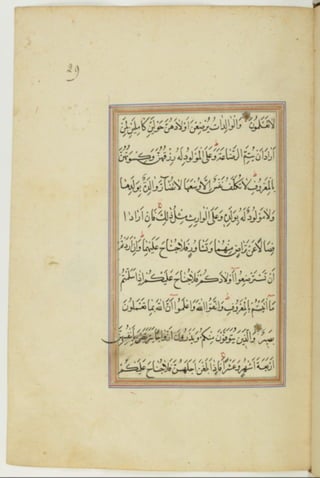 29
لَا تَعْلَمُونَ وَالْوَالِدَاتُ يُرْضِعْنَ أَوْلَادَهُنَّ حَوْلَيْنِ كَامِلَيْنِ لِمَنْ
أَرَادَ أَنْ يُتِمَّ الرَّضَاعَةَ وَعَلَى الْمَوْلُودِ لَهُ رِزْقُهُنَّ وَكِسْوَتُهُنَّ
بِالْمَعْرُوفِ لَا تُكَلَّفُ نَفْسٌ إِلَّا وُسْعَهَا لَا تُضَارَّ وَالِدَةٌ بِوَلَدِهَا
وَلَا مَوْلُودٌ لَهُ بِوَلَدِهِ وَعَلَى الْوَارِثِ مِثْلُ ذَلِكَ فَإِنْ أَرَادَا
فِصَالًا عَنْ تَرَاضٍ مِنْهُمَا وَتَشَاوُرٍ فَلَا جُنَاحَ عَلَيْهِمَا وَإِنْ أَرَدْتُمْ
أَنْ تَسْتَرْضِعُوا أَوْلَادَكُمْ فَلَا جُنَاحَ عَلَيْكُمْ إِذَا سَلَّمْتُمْ
مَا آتَيْتُمْ بِالْمَعْرُوفِ وَاتَّقُوا اللَّهَ وَاعْلَمُوا أَنَّ اللَّهَ بِمَا تَعْمَلُونَ
بَصِيرٌ وَالَّذِينَ يُتَوَفَّوْنَ مِنْكُمْ وَيَذَرُونَ أَزْوَاجًا يَتَرَبَّصْنَ بِأَنْفُسِهِنَّ
أَرْبَعَةَ أَشْهُرٍ وَعَشْرًا فَإِذَا بَلَغْنَ أَجَلَهُنَّ فَلَا جُنَاحَ عَلَيْكُمْ